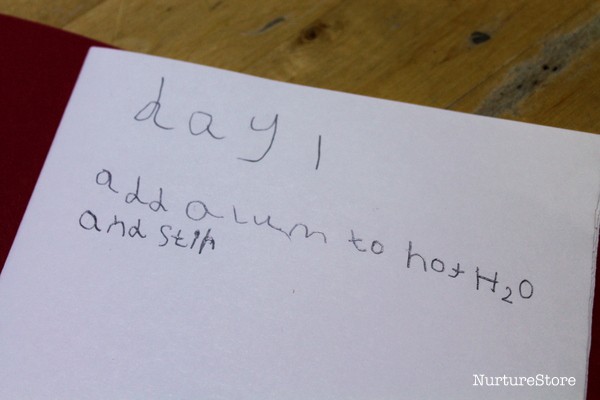 day 1
add alum to hot H₂O
and stir
NurtureStore